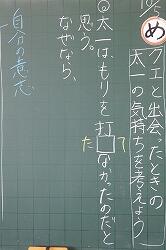 10/5
め
クエと出会ったときの
太一の気持ちを考えよう
◎太一は、もりを打□なかったのだと
た
て
思う。
なぜなら、
自分の意志